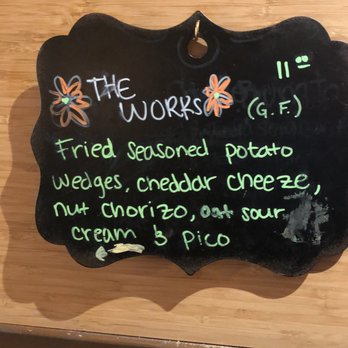 THE 11⁰⁰
WORKS (G.F.)
Fried seasoned potato
wedges, cheddar cheeze,
nut chorizo, oat sour
cream & pico